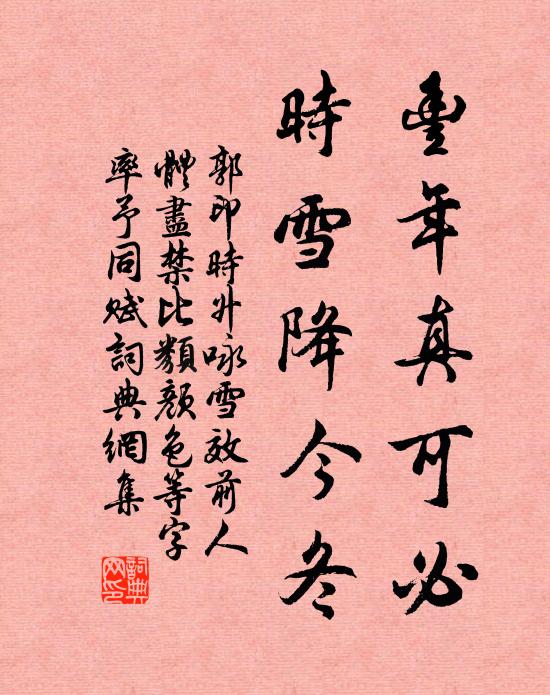 豐年真可必
時雪降今冬
郭印時升咏雪效前人
體盡禁比類顏色等字
率予同賦詞典網集
詞典
网印